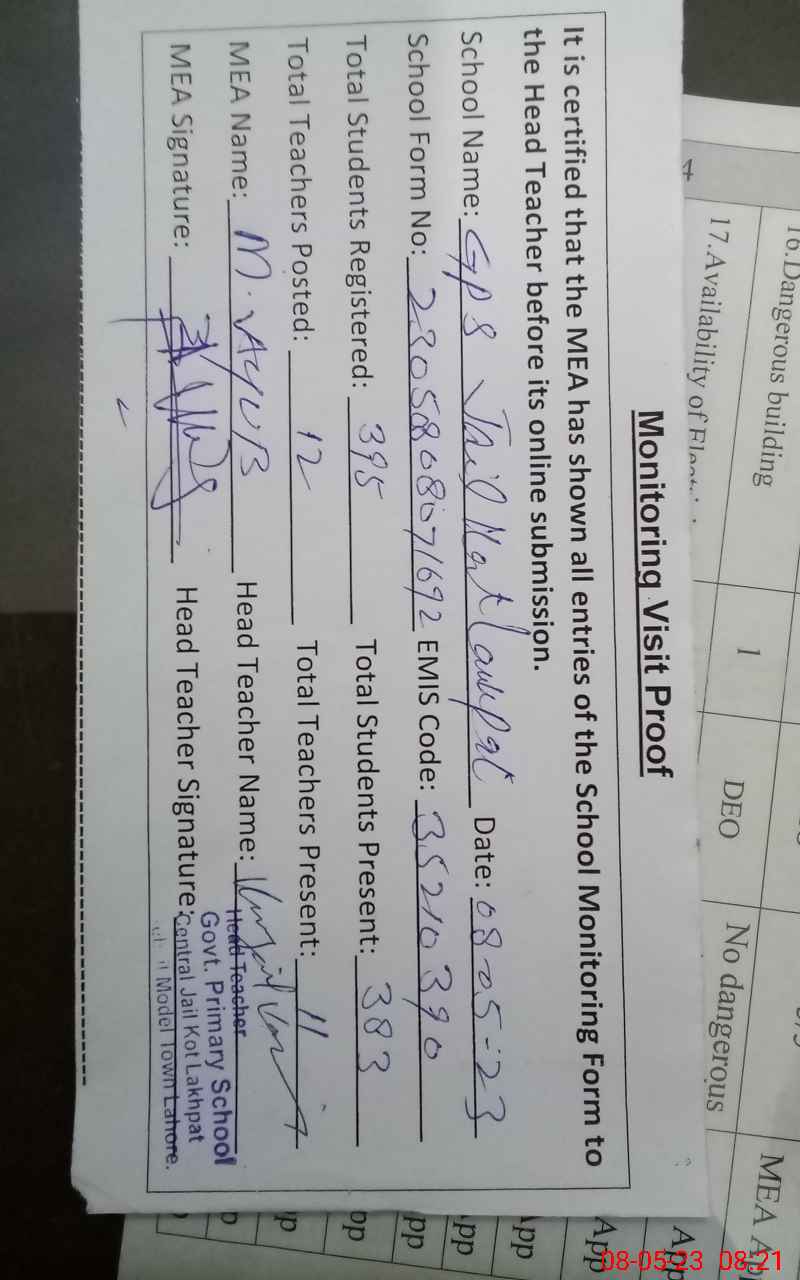 Monitoring Visit Proof
It is certified that the MEA has shown all entries of the School Monitoring Form to
the Head Teacher before its online submission.
School Name: GPS Jail Kot Lawkpat Date: 08-05-23
School Form No: 2305808071692 EMIS Code: 35210390
Total Students Registered: 395 Total Students Present: 383
Total Teachers Posted: 12 Total Teachers Present: 11
MEA Name: M. AYUB Head Teacher Name:
MEA Signature: Head Teacher Signature:
Head Teacher
Govt. Primary School
Central Jail Kot Lakhpat
Model Town Lahore.
16.Dangerous building 1 DEO No dangerous MEA Ap
17.Availability of
App
App
App
App
08-05-23 08:21